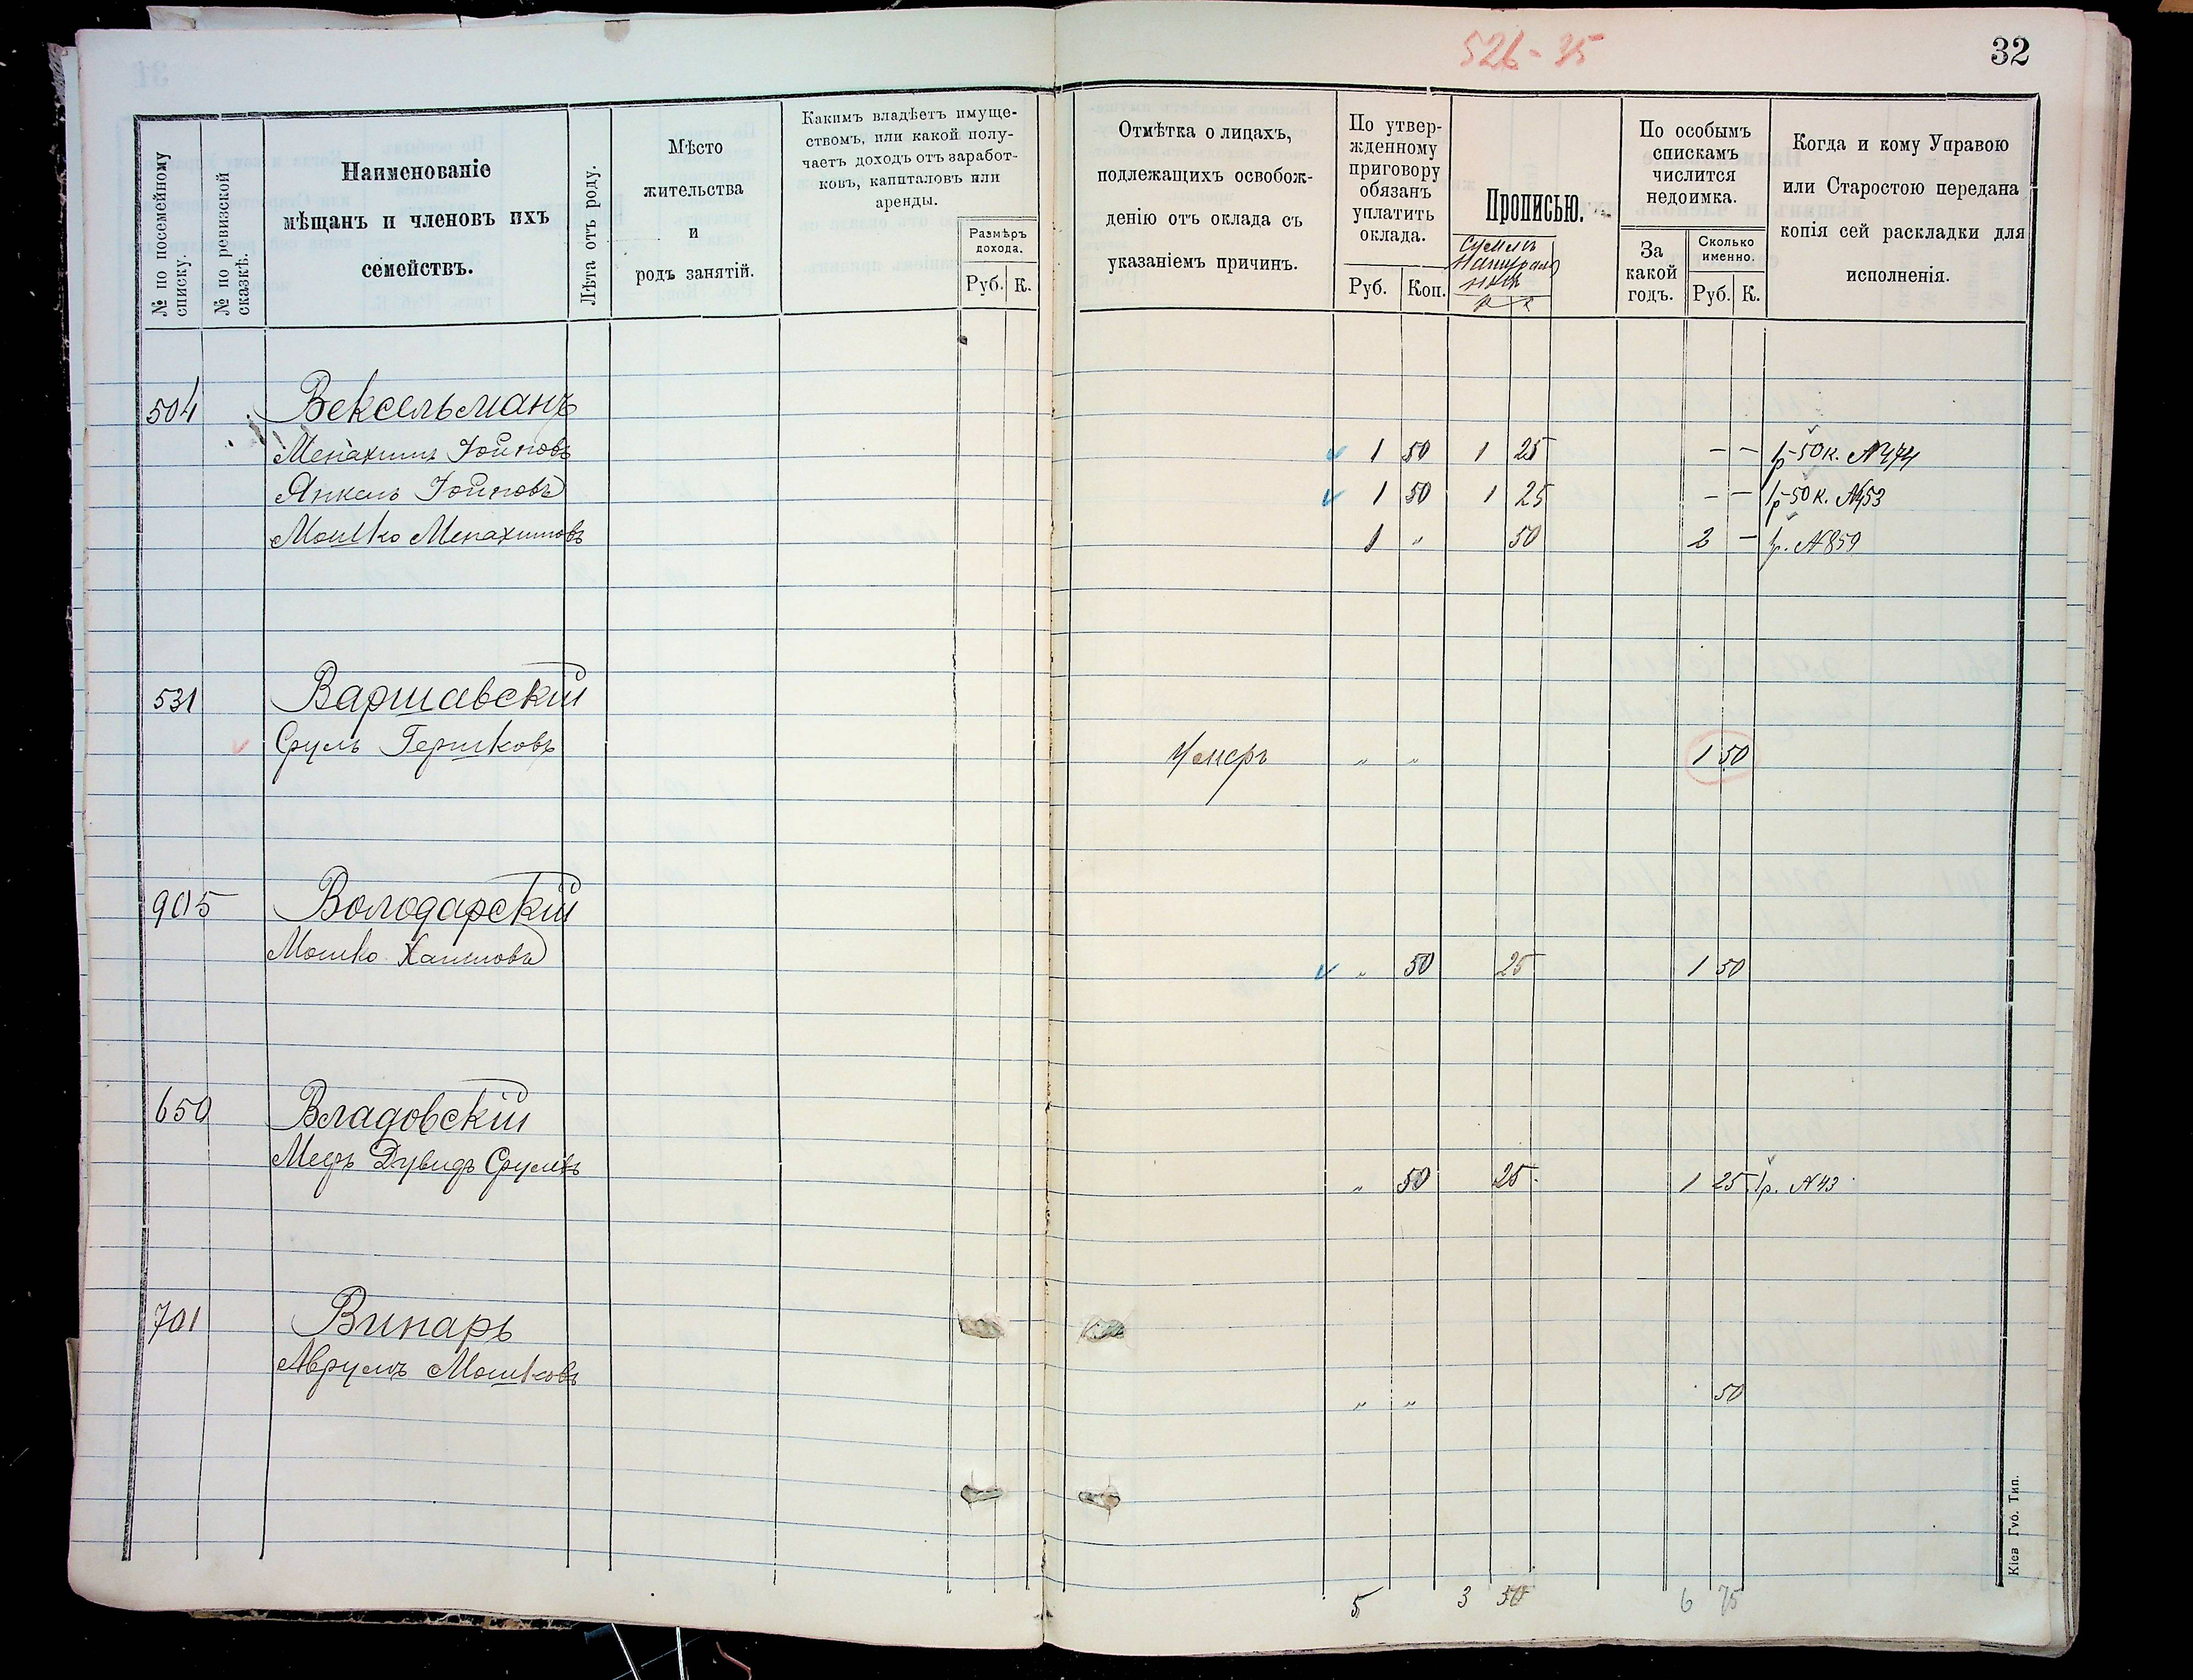 526-35
32
№ по посемейному списку.
№ по ревизской сказкѣ.
Наименованіе
мѣщанъ и членовъ ихъ
семействъ.
Лѣта отъ роду.
Мѣсто
жительства
и
родъ занятій.
Какимъ владѣетъ имуще-
ствомъ, или какой полу-
чаетъ доходъ отъ заработ-
ковъ, капиталовъ или
аренды.
Размѣръ
дохода.
Руб. К.
Отмѣтка о лицахъ,
подлежащихъ освобож-
денію отъ оклада съ
указаніемъ причинъ.
По утвер-
жденному
приговору
обязанъ
уплатить
оклада.
Руб. Коп.
Прописью.
р к
По особымъ
спискамъ
числится
недоимка.
За
какой
годъ.
Сколько
именно.
Руб. К.
Когда и кому Управою
или Старостою передана
копія сей раскладки для
исполненія.
504 Вексельманъ
Менахимъ Іойновъ 1 50 1 25 - - 1р-50к. №474
Янкель Іойновъ 1 50 1 25 - - 1р-50к. №453
Мошко Менахимовъ 1 " 50 2 - 1р. №859
531 Варшавскій
Сруль Гершковъ Умеръ " " 1 50
905 Володарскій
Мошко Хаимовъ " 50 25 1 50
650 Владовскій
Мееръ Дувидъ Срулевъ " 50 25. 1 25 1р. №43
701 Винарь
Аврумъ Мошковъ " " 50
5 3 50 6 75
Кіев Губ. Тип.